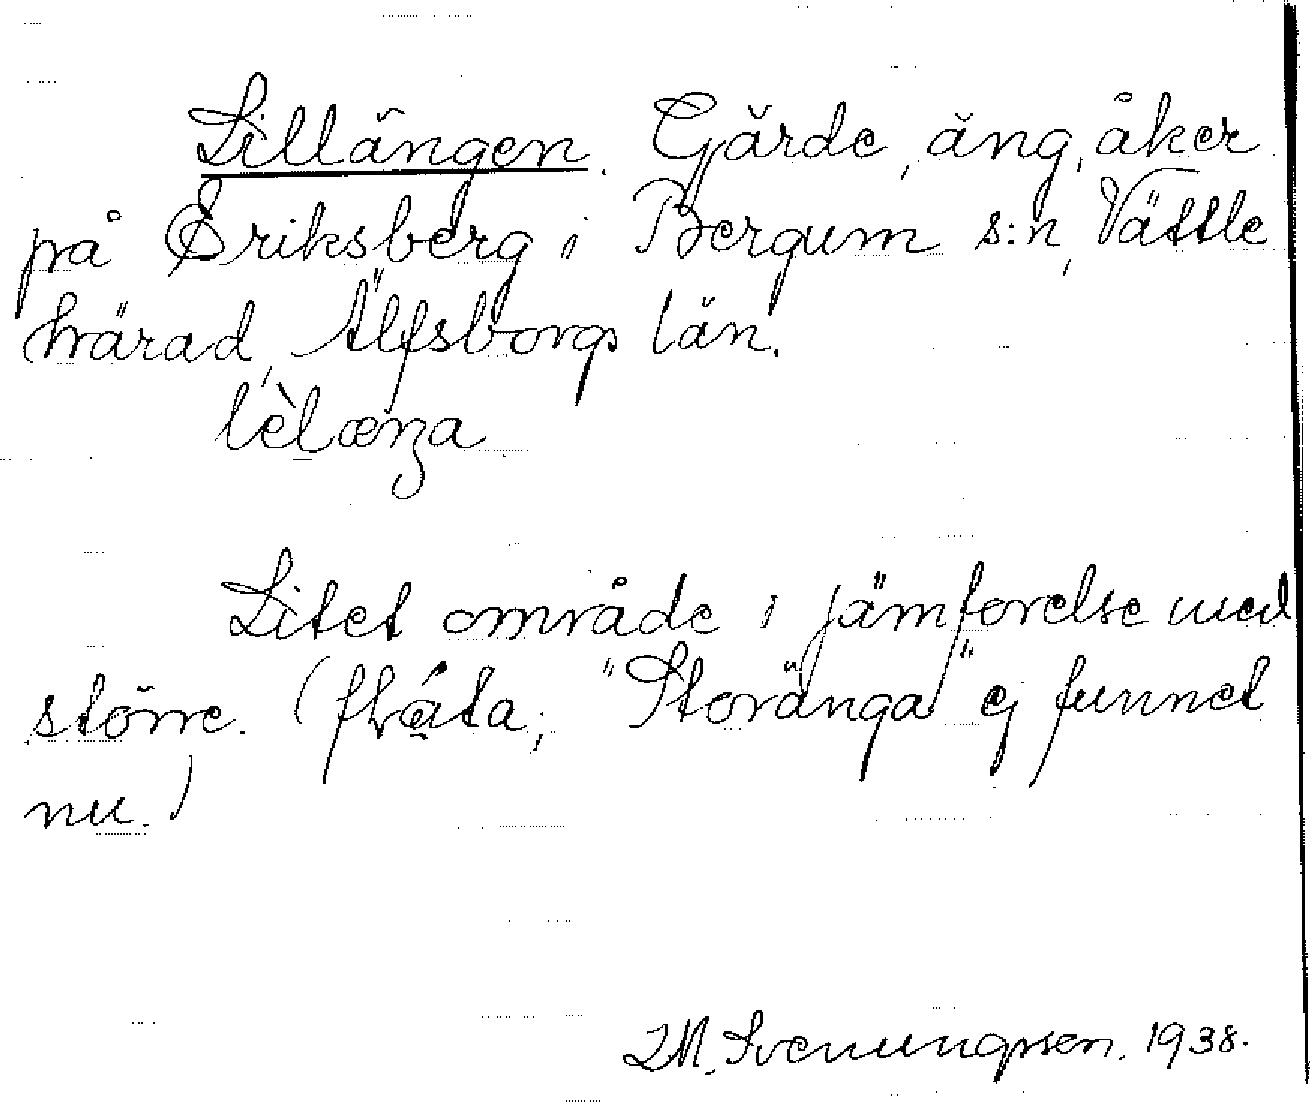 Lillängen. Gärde, äng, åker
på Eriksberg i Bergum s:n, Vättle
härad, Älfsborgs län.
lèlænga
Litet område i jämförelse med
större. ( "Storänga" ej funnet
nu.)
Svenungsson. 1938.